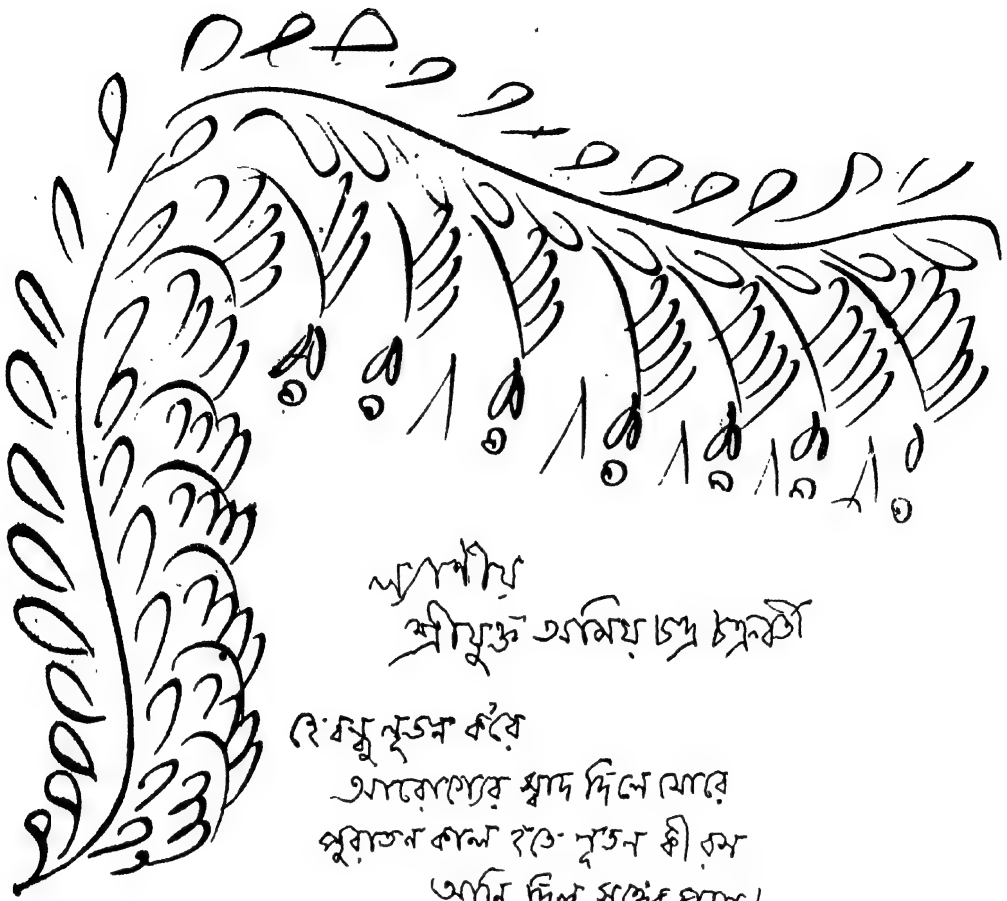 কল্যাণীয়
শ্রীযুক্ত অমিয় চন্দ্র চক্রবর্তী
হে বন্ধু নূতন ক'রে
আরোগ্যের স্বাদ দিলে মোরে
পুরাতন কাল হতে নূতন কী রস
আনি দিল